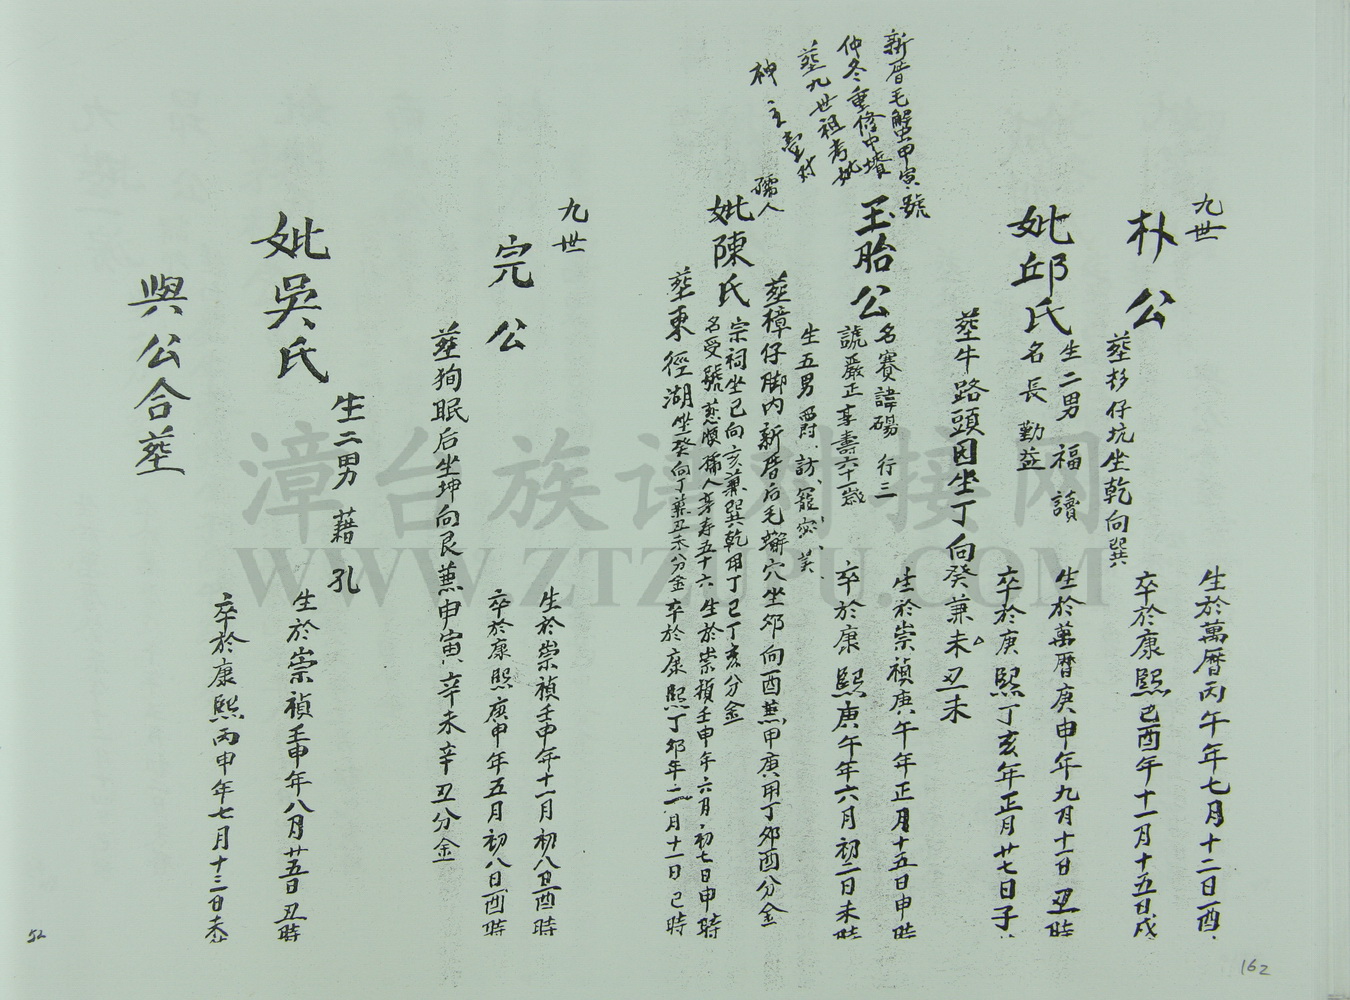 九世
朴公
生於萬曆丙午年七月十二日酉
卒於康熙己酉年十一月十五日戌
葬杉仔坑坐乾向巽
妣邱氏
生二男 福 讀
名長 勤益
生於萬曆庚申年九月十一日丑時
卒於康熙丁亥年正月廿七日子
葬牛路頭因坐丁向癸兼未丑未
新厝毛蟹甲寅號
仲冬重修中墳
葬九世祖考妣
神主
玉胎公
名賽諱碭 行三
號嚴正享壽六十一歲
生於崇禎庚午年正月十五日申時
卒於康熙庚午年六月初二日未時
生五男 爵 訪 寵
葬樟仔脚内新厝后毛蠏穴坐卯向酉兼甲庚用丁卯酉分金
孺人
妣陳氏
宗祠坐巳向亥兼巽乾用丁巳丁亥分金
名受號慈順孺人享寿五十六 生於崇禎壬申年六月初七日申時
葬東徑湖坐癸向丁兼丑未分金 卒於康熙丁卯年二月十一日巳時
九世
完公
生於崇禎壬申年十一月初八日酉時
卒於康熙庚申年五月初八日酉時
葬狗眠后坐坤向艮兼申寅辛未辛丑分金
妣吳氏
生二男 藉 孔
生於崇禎壬申年八月廿五日丑時
卒於康熙丙申年七月十三日未
與公合葬
52
162
漳台族谱对接网
WWW.ZTZUPU.COM